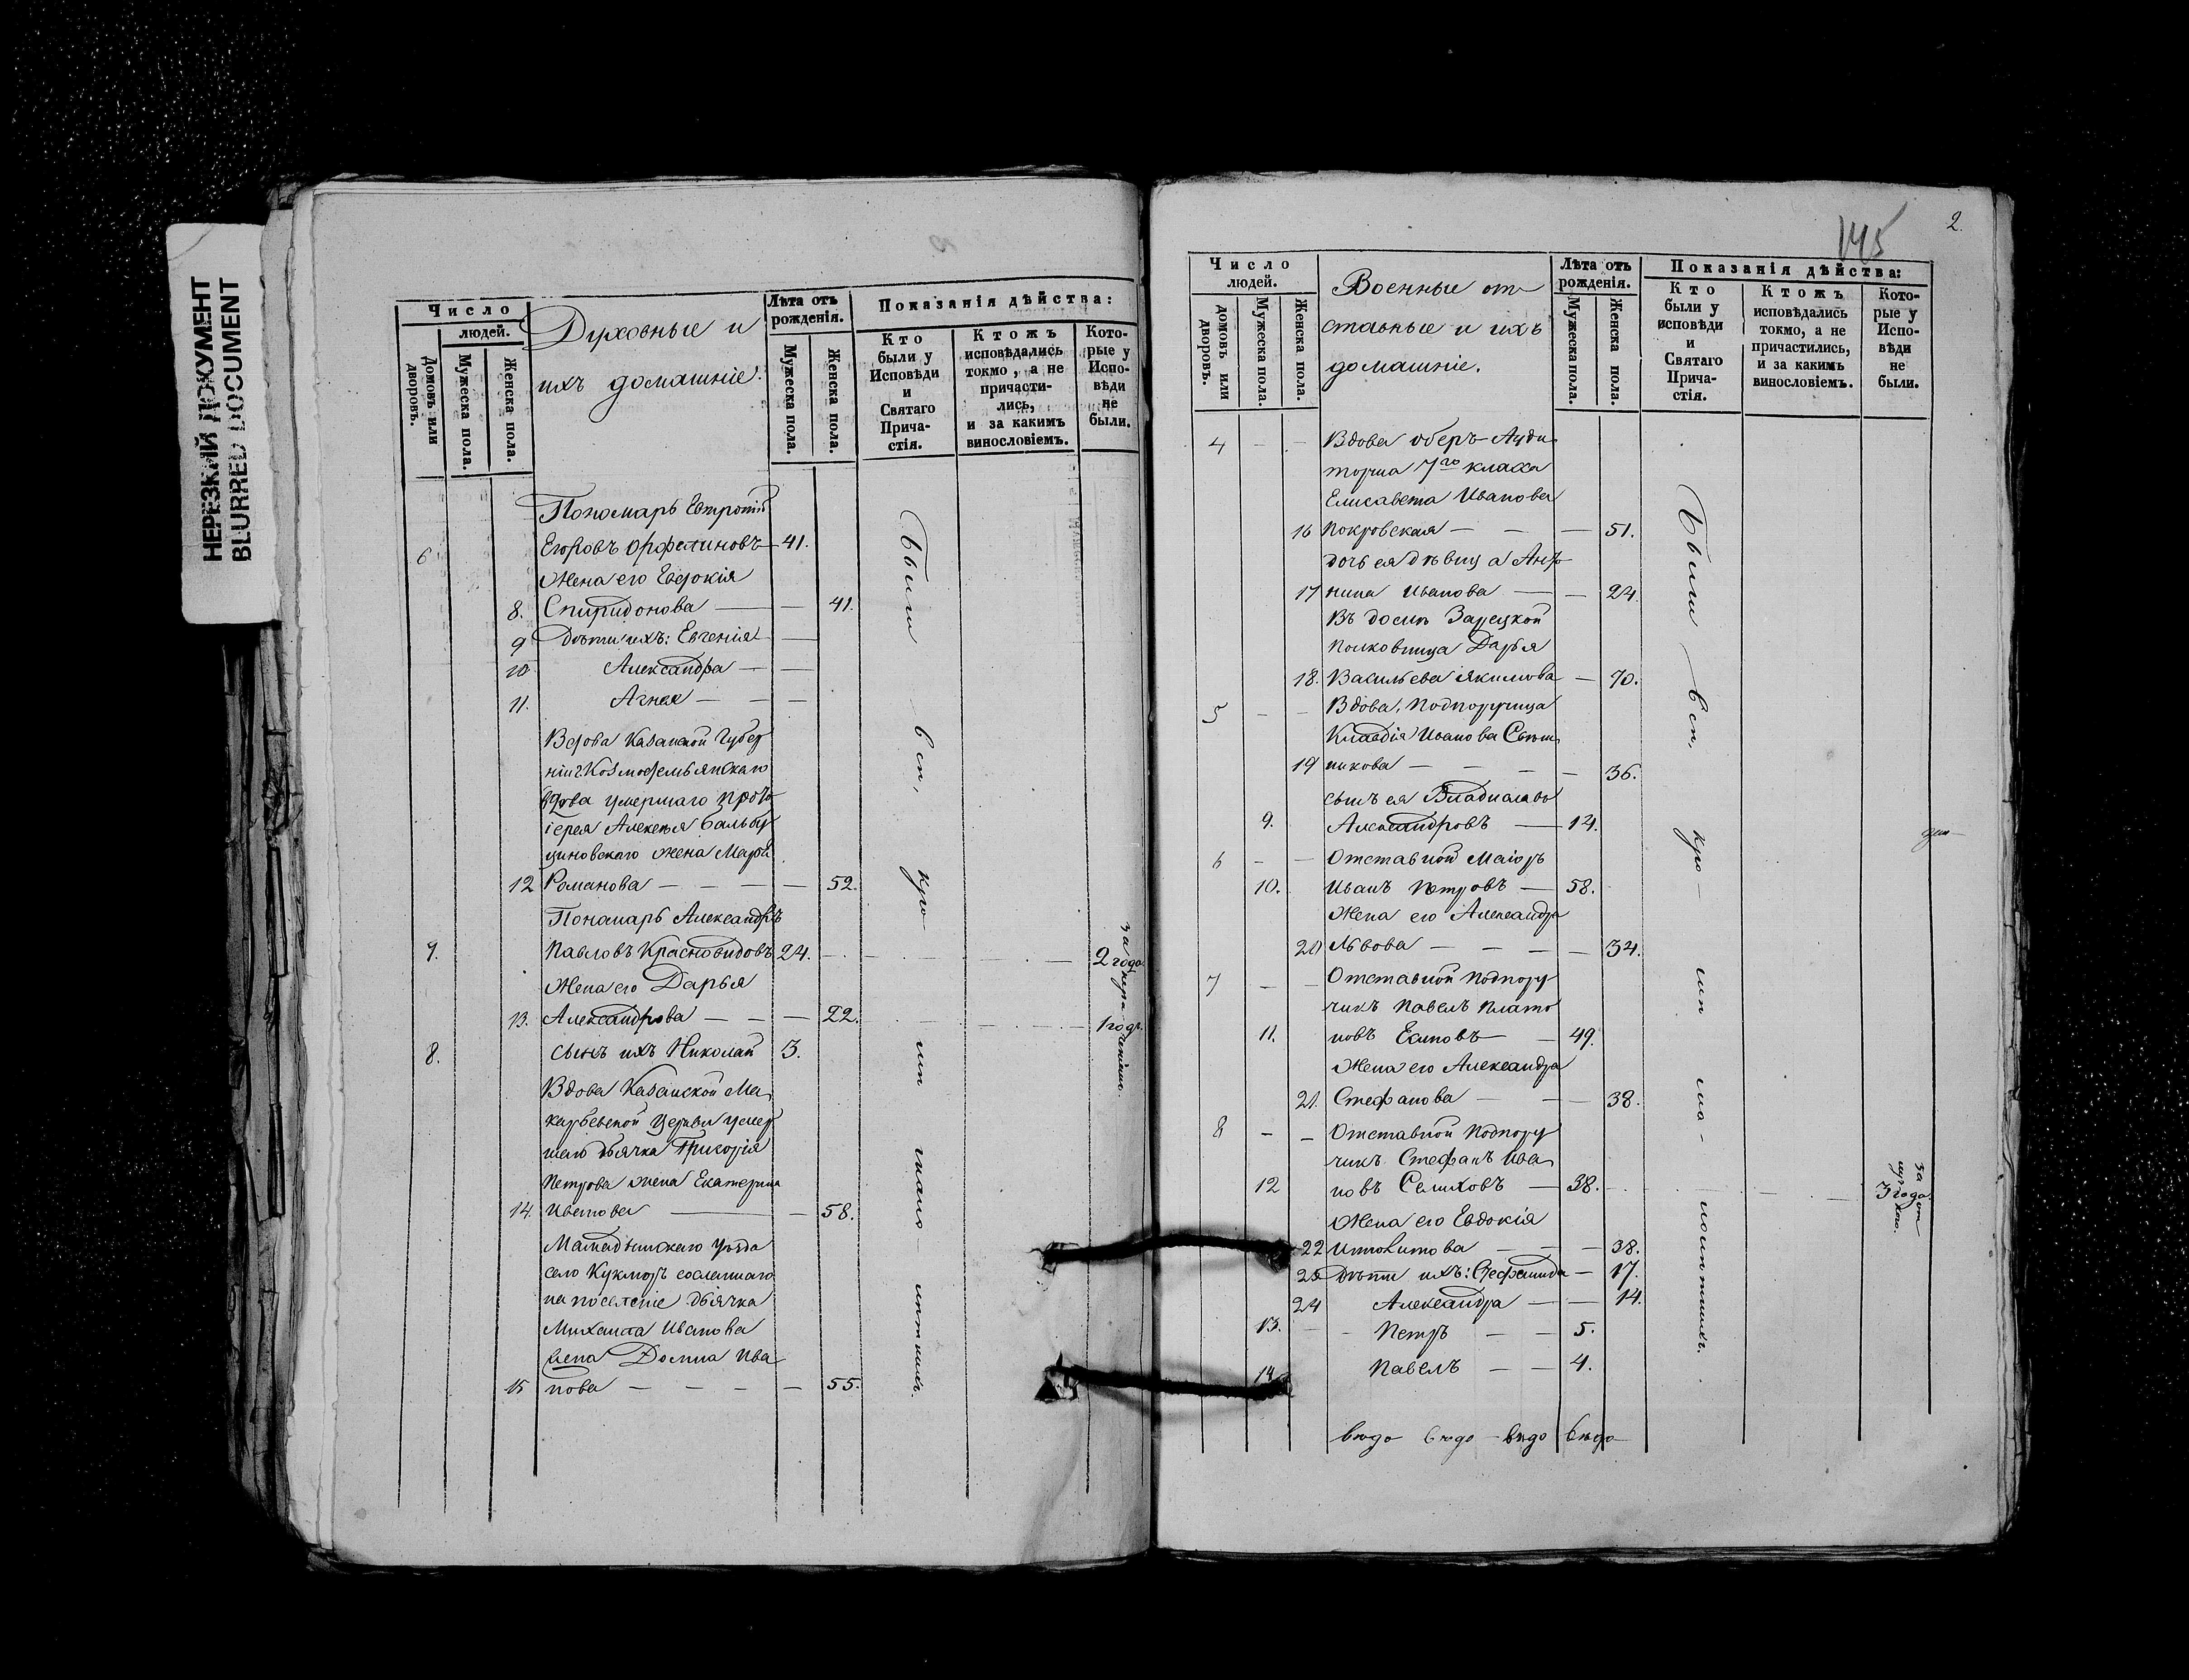 НЕРЕЗКИЙ ДОКУМЕНТ
BLURRED DOCUMENT
Число
людей.
Домовъ или дворовъ.
Мужеска пола.
Женска пола.
Духовные и
ихъ домашніе.
Лѣта отъ рожденія.
Мужеска пола.
Женска пола.
Показанія дѣйства:
Кто были у Исповѣди и Святаго Прича-стія.
Ктожъ исповѣдались токмо, а не причасти-лись, и за какимъ винословіемъ.
Кото-рые у Испо-вѣди не были.
Пономарь Евтропій
6. Егоровъ Орфелиновъ 41.
Жена его Евдокія
8. Спиридонова — — 41.
9 Дѣти ихъ: Евгенія —
10 Александра — —
11. Агнея — — —
Вдова Казанской Губер
ніи г. Козмодемьянскаго
умершаго Прото
іерея Алексѣя
жена Марѳа
12 Романова — — — — 52.
Пономарь Александръ
7. Павловъ Красновидовъ 24. — — — 2 года
Жена его Дарья
13. Александрова — — — 22. — — 1 годъ
за нераченіемъ
8. сынъ ихъ Николай 3.
Вдова Казанской Ма
карьевской Церкви умер
шаго дьячка Григорія
Петрова жена Екатерина
14. Иванова — — 58.
Мамадышскаго уѣзда
село Кукморъ сосланнаго
на поселеніе дьячка
Михаила Иванова
жена Домна Ива
15 нова — — — — — 55.
Были всѣ, кро-
145
2.
Число
людей.
домовъ или дворовъ.
Мужеска пола.
Женска пола.
Военные от
ставные и ихъ
домашніе.
Лѣта отъ рожденія.
Мужеска пола.
Женска пола.
Показанія дѣйства:
Кто были у исповѣди и Святаго Прича-стія.
Ктожъ исповѣдались токмо, а не причастились, и за какимъ винословіемъ.
Кото-рые у Испо-вѣди не были.
4 — — Вдова оберъ-Ауди
торша 7го класса
Елисавета Иванова
16 Покровская — — — 51.
дочь ея дѣвица Анто
17 нина Иванова — — 24.
Въ домѣ Зарецкой
Полковница Дарья
18. Васильева Якимова — 70.
5 — — Вдова, Подпоручица
Клавдія Иванова Свѣш
19 никова — — — — 36.
сынъ ея Владиславъ
9. Александровъ — 14.
6 — — Отставной Маіоръ
10. Иванъ Петровъ — 58.
Жена его Александра
20 Львова — — — — 34.
7 — — Отставной Подпору
чикъ Павелъ Плато
11. новъ Есиповъ — — 49.
Жена его Александра
21. Стефанова — — — 38.
8 — — Отставной Подпору
чикъ Стефанъ Ива
12 новъ Селиховъ — 38. — — — 3 года
Жена его Евдокія
22 — — — 38.
23 Дѣти ихъ: Стефанида — 17.
24 Александра — — 14.
13. — — Петръ — — 5.
14 Павелъ — — 4.
Были всѣ, кро-